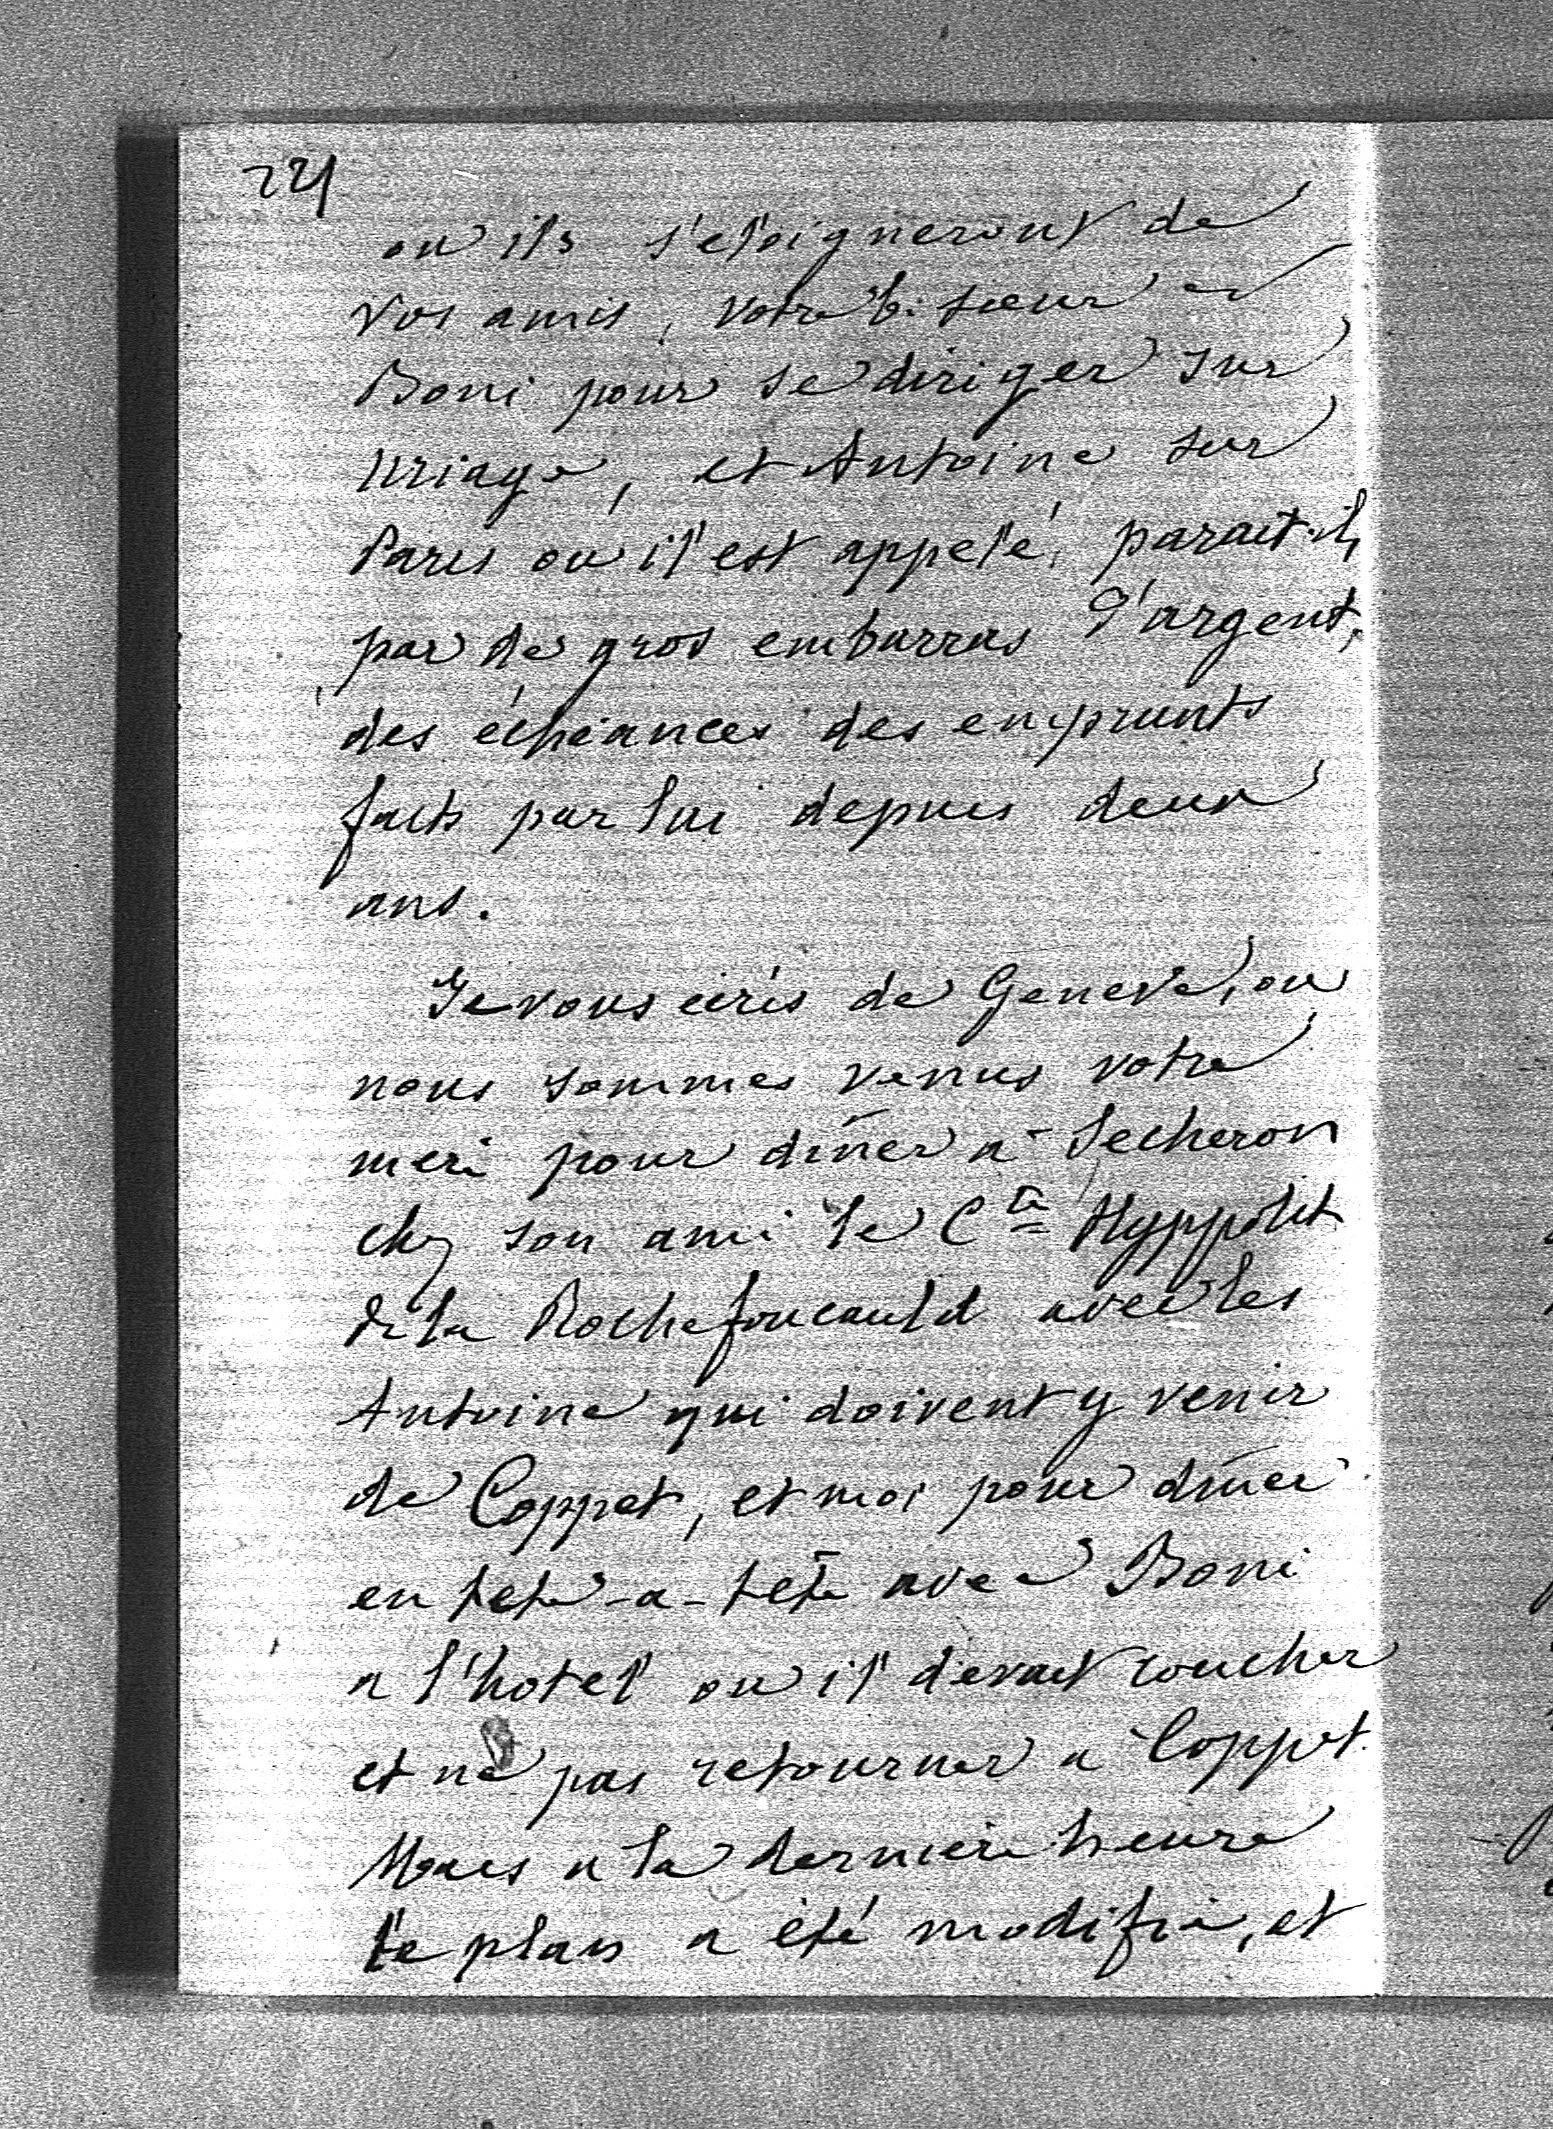 ou ils s'eloigneront de
vos amis, votre b. soeur et
Boni pour se diriger sur
Uriage, et Antoine sur
Paris où il est appelé, parait-il,
par de gros embarras d'argent,
des échéances des emprunts
faits par lui depuis deux
ans.
Je vous ecris de Genève, ou
nous sommes venus votre
mere pour diner a Secheron
chez son ami le Cte Hyppolit
de la Rochefoucauld avec les
Antoine qui doivent y venir
de Coppet, et moi pour diner
en tete-a-tete avec Boni
a l'hotel ou il devait coucher
et ne pas retourner a Coppet.
Mais a la derniere heure
le plan a été modifié, et